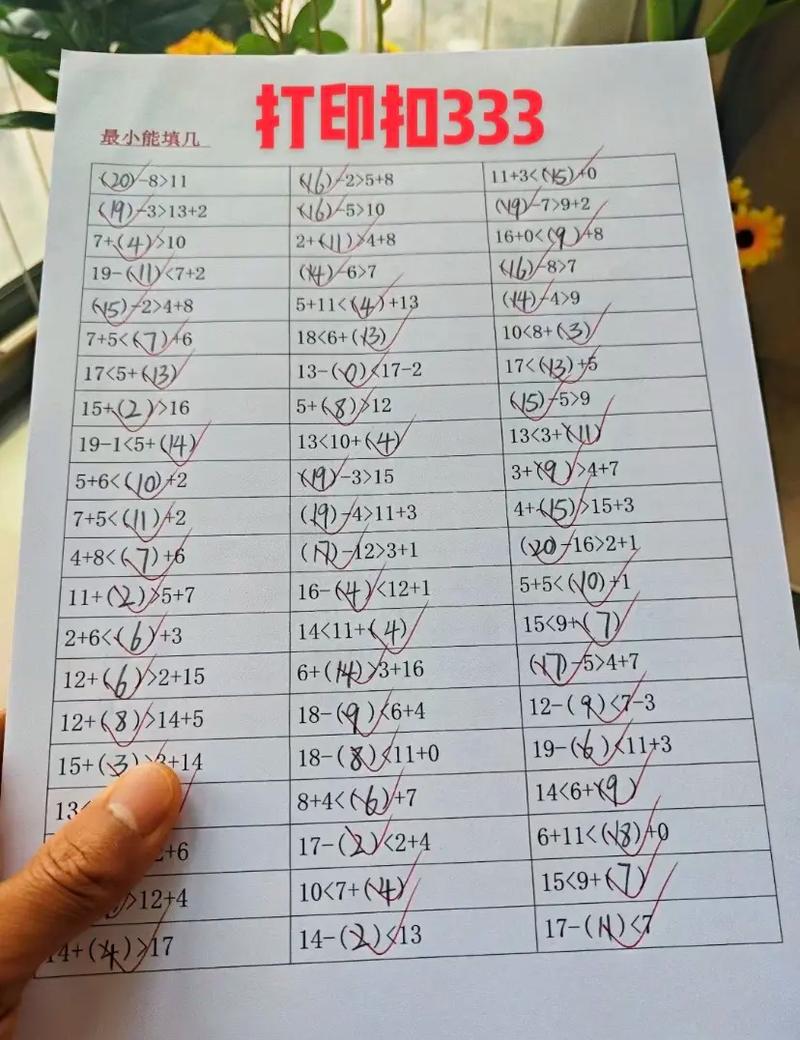 打印扣333
最小能填几
(20)-8>11 (16)-2>5+8 11+3<(15)+0
(19)-3>13+2 (16)-5>10 (19)-7>9+2
7+(4)>10 2+(11)>4+8 16+0<(9)+8
19-(11)<7+2 (14)-6>7 (16)-8>7
(15)-2>4+8 5+11<(4)+13 (14)-4>9
7+5<(7)+6 18<6+(13) 10<8+(3)
17<5+(13) 13-(0)<17-2 17<(13)+5
15+(2)>16 5+(8)>12 (15)-5>9
19-1<5+(14) 13<10+(4) 13<3+(11)
5+6<(10)+2 (19)-3>15 3+(9)>4+7
7+5<(11)+2 (19)-4>11+3 4+(15)>15+3
4+8<(7)+6 (17)-12>3+1 (20)-16>2+1
11+(2)>5+7 16-(4)<12+1 5+5<(10)+1
2+6<(6)+3 14<11+(4) 15<9+(7)
12+(6)>2+15 6+(14)>3+16 (17)-5>4+7
12+(8)>14+5 18-(9)<6+4 12-(9)<7-3
15+(3)>3+14 18-(8)<11+0 19-(6)<11+3
13< 8+4<(6)+7 14<6+(9)
+6 17-(2)<2+4 6+11<(18)+0
>12+4 10<7+(4) 15<9+(7)
14+(4)>17 14-(2)<13 17-(11)<7